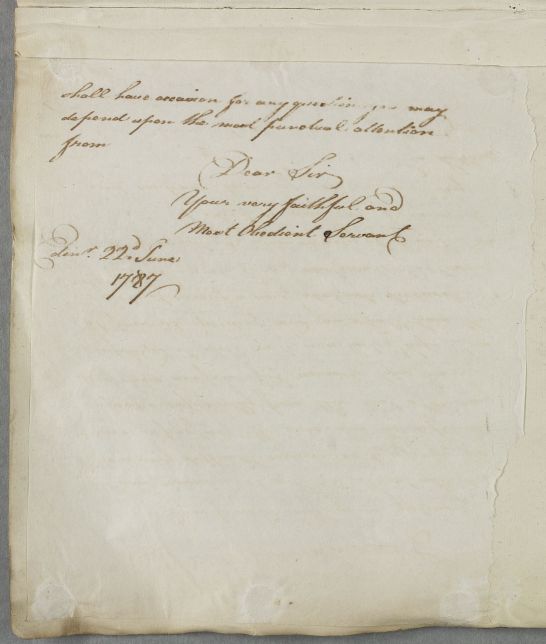 shall have occasion for any you may
depend upon the most punctual attention
from
Dear Sir
Your very faithful and
Most Obedient Servant
Edinr. 22d June
1787